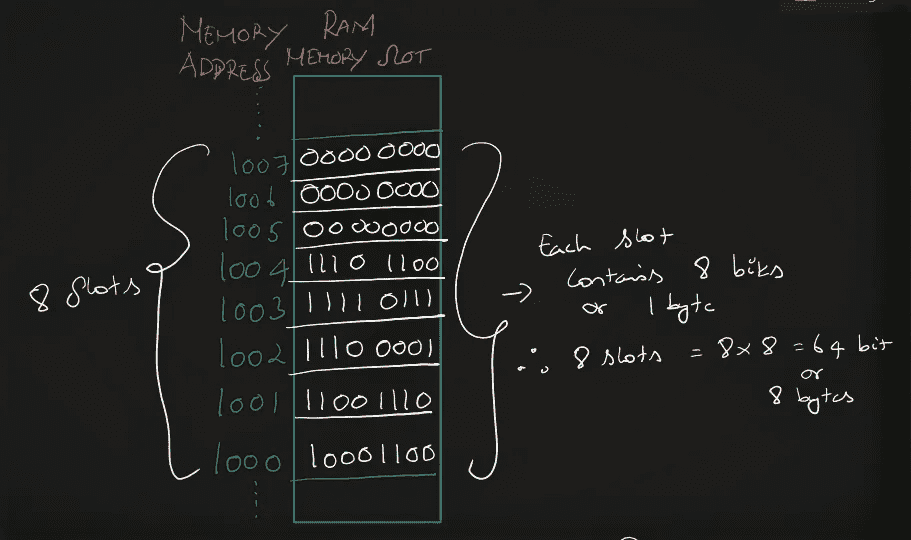 MEMORY ADDRESS
RAM MEMORY SLOT
1007 0000 0000
1006 0000 0000
1005 00 000000
1004 1110 1100
1003 1111 0111
1002 1110 0001
1001 11001110
1000 10001100
8 Slots
→ Each slot
contains 8 bits
or 1 byte
∴ 8 slots = 8 × 8 = 64 bit
or
8 bytes